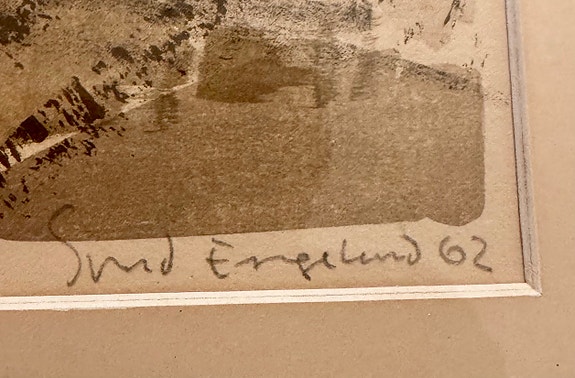 Svend Engelund 62